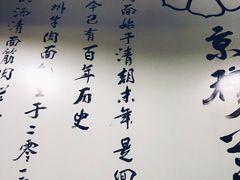 京
面始于清朝末年是回
今已有百年历史
牛肉面 于二零一
清面筋肉